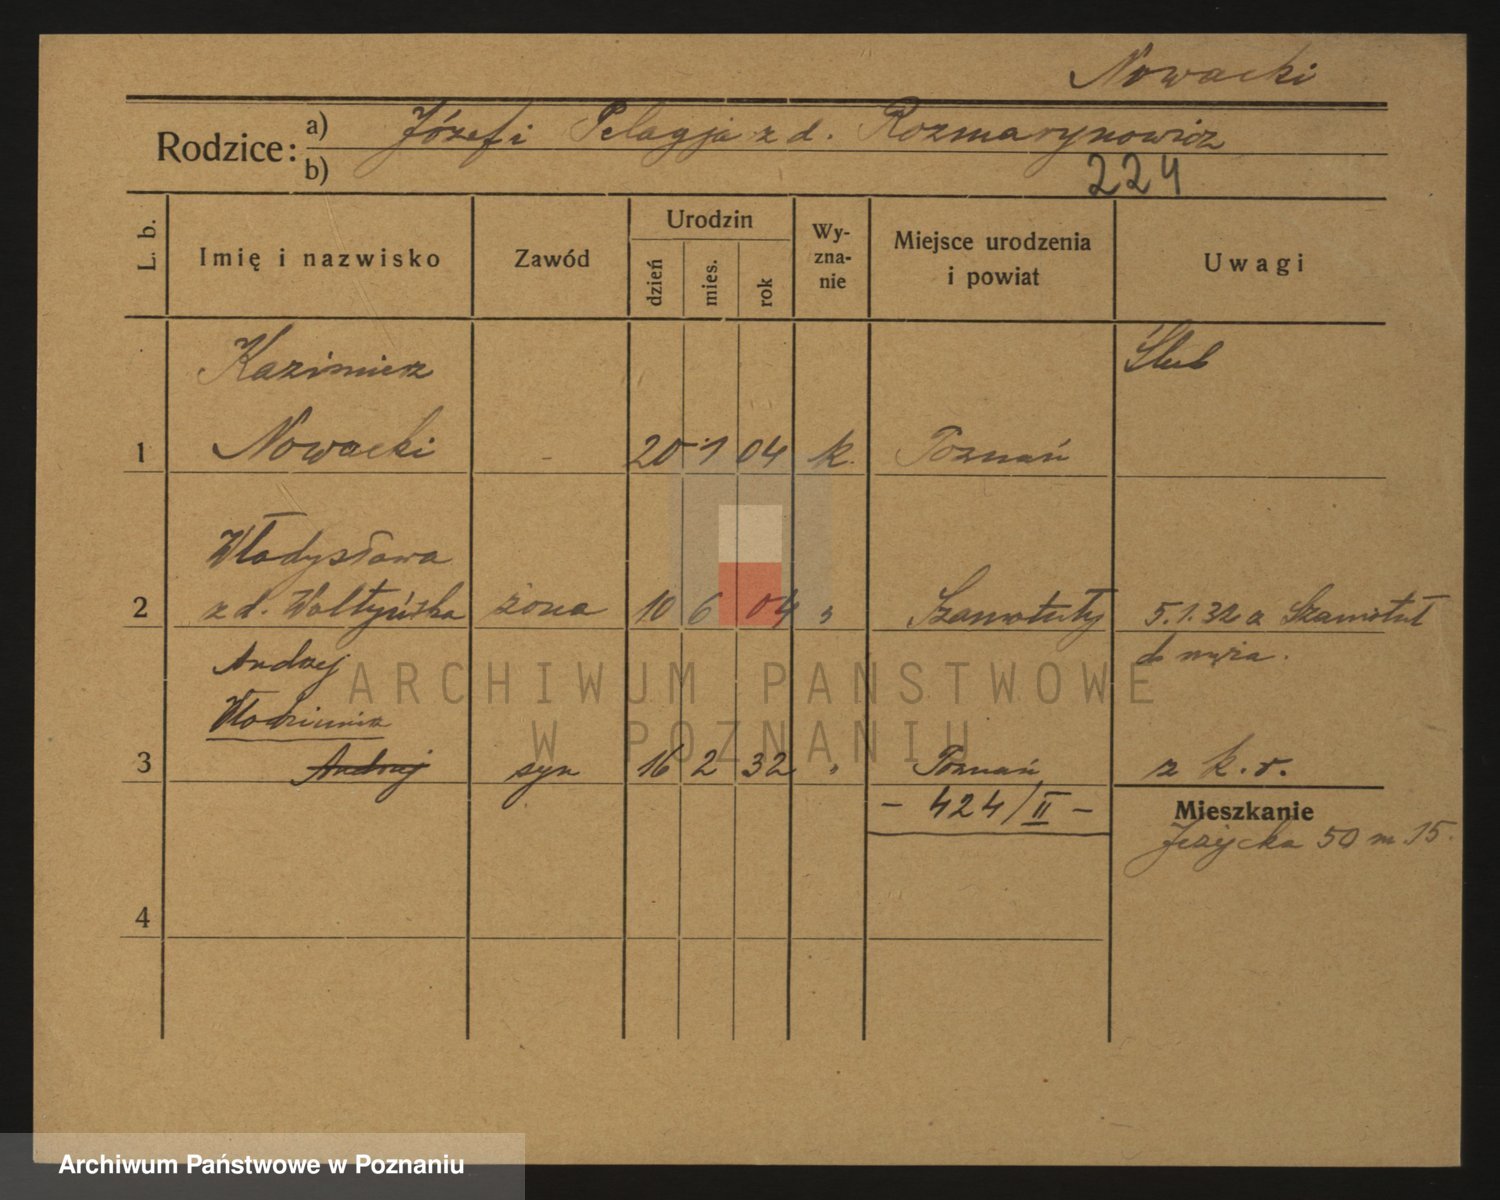 Nowacki
Rodzice: a) Józef i Pelagja z d. Rozmarynowicz
b) 224
L. b. Imię i nazwisko Zawód Urodzin dzień mies. rok Wy-zna-nie Miejsce urodzenia i powiat Uwagi
Kazimierz Ślub
1 Nowacki - 20 1 04 k. Poznań
Władysława
2 z d. Wołtyńska żona 10 6 04 " Szamotuły 5.1.32 z Szamotuł
Andrzej do męża.
Włodzimierz
3 Andrzej syn 16 2 32 " Poznań z k. r.
- 424/II - Mieszkanie
Jeżycka 50 m 15.
4
ARCHIWUM PAŃSTWOWE
W POZNANIU
Archiwum Państwowe w Poznaniu